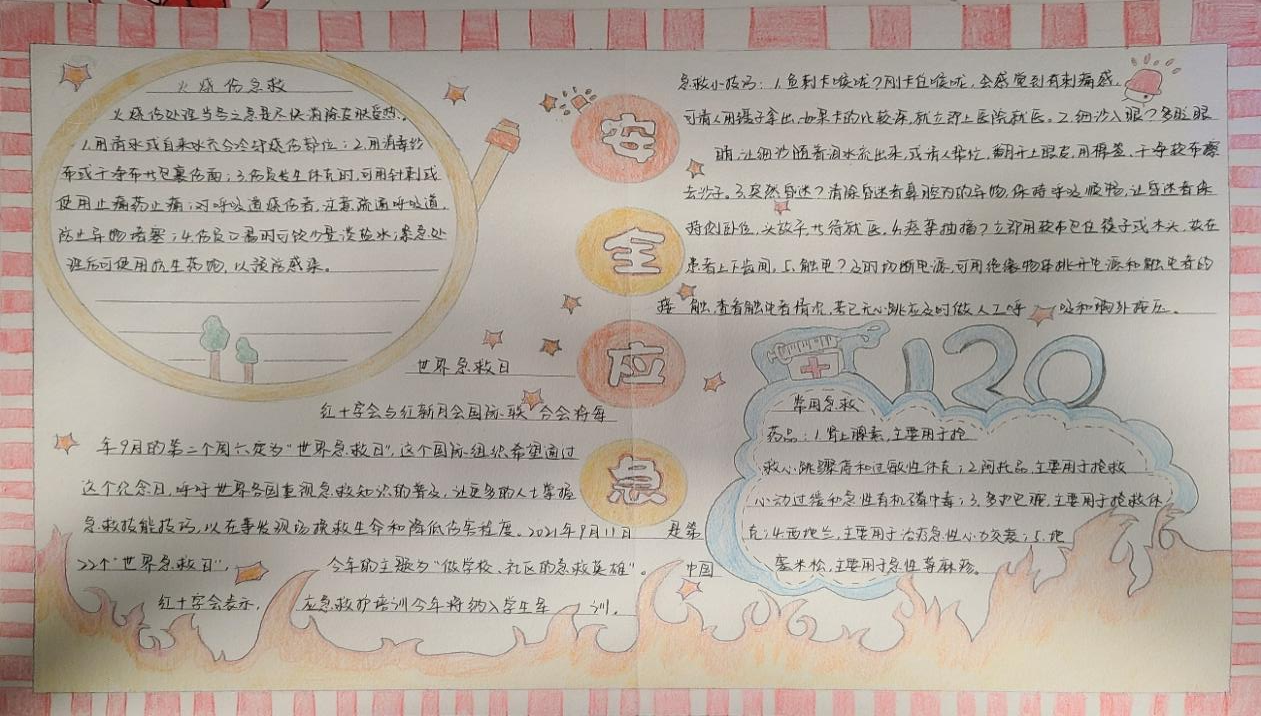 火烧伤急救
火烧伤处理当务之急是尽快消除皮肤受热。
1.用清水或自来水充分冷却烧伤部位；2.用消毒纱
布或干净布共包裹伤面；3.伤员发生休克时，可用针刺或
使用止痛药止痛；对呼吸道烧伤者，注意疏通呼吸道，
防止异物堵塞；4.伤员口渴时可饮少量淡盐水；紧急处
理后可使用抗生药物，以预防感染。
安
全
应
急
急救小技巧：1.鱼刺卡喉咙？刚卡住喉咙，会感觉到有刺痛感，
可请人用镊子拿出，如果卡的比较深，就立即上医院就医。2.细沙入眼？多眨眼
睛，让细沙随着泪水流出来，或请人帮忙，翻开上眼皮，用棉签、干净纱布擦
去沙子。3.突然昏迷？清除昏迷者鼻腔内的异物，保持呼吸顺畅，让昏迷者保
持侧卧位，头放平，共待就医。4.痉挛抽搐？立即用纱布包住筷子或木头，放在
患者上下齿间，5.触电？及时切断电源，可用绝缘物体挑开电源和触电者的
接触，查看触电者情况，若已无心跳应及时做人工呼吸和胸外按压。
世界急救日
红十字会与红新月会国际联合会将每
年9月的第二个周六定为“世界急救日”，这个国际组织希望通过
这个纪念日，呼吁世界各国重视急救知识的普及，让更多的人士掌握
急救技能技巧，以在事发现场挽救生命和降低伤害程度。2021年9月11日 是第
22个“世界急救日”， 今年的主题为“做学校、社区的急救英雄”。 中国
红十字会表示， 应急救护培训今年将纳入学生军 训。
120
常用急救
药品：1.肾上腺素，主要用于抢
救心跳骤停和过敏性休克；2.阿托品，主要用于抢救
心动过缓和急性有机磷中毒；3.多巴胺，主要用于抢救休
克；4.西地兰，主要用于治疗急性心力衰竭；5.地
塞米松，主要用于急性荨麻疹。